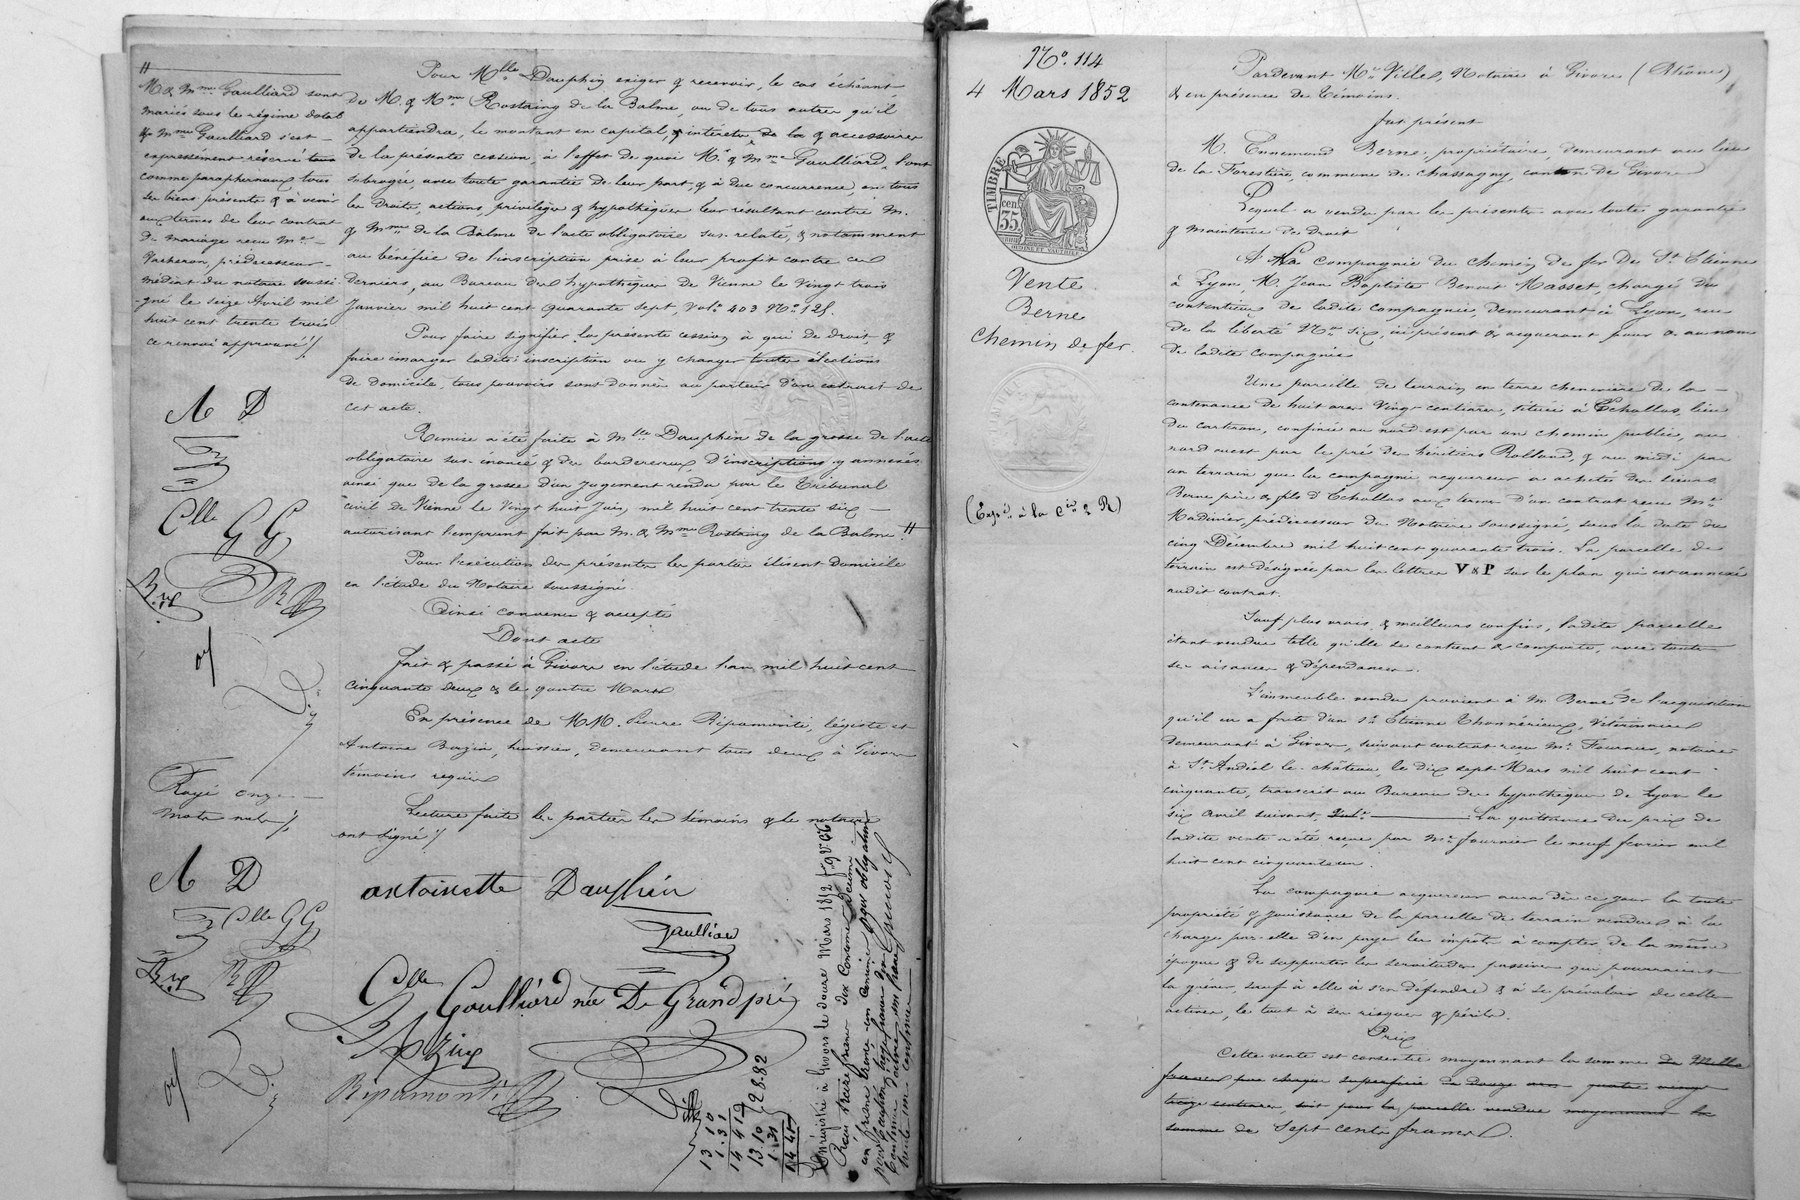 M. & Mme Gaulliard sont
mariés sous le régime dotal
& Mme Gaulliard s'est
expressément réservé tous
comme paraphernaux tous
ses biens présents & à venir
aux termes de leur contrat
de mariage reçu Me
Vacheron, prédécesseur
médiat du notaire soussi-
-gné le seize Avril mil
huit cent trente trois
ce renvoi approuvé ./.
A D
Clle GG
Rayé onze
mots nuls ./.
A D
Clle GG
Pour Mlle Dauphin exiger & recevoir, le cas échéant,
de M. & Mme Rostaing de la Balme, ou de tous autres qu'il
appartiendra, le montant en capital, & intérêts & accessoires
de la présente cession, à l'effet de quoi Mr & Mme Gaulliard, l'ont
subrogée, avec toute garantie de leur part, & à due concurrence, en tous
les droits, actions, privilèges & hypothèques leur résultant contre M.
& Mme de la Balme de l'acte obligatoire sus-relaté, & notamment
au bénéfice de l'inscription prise à leur profit contre ces
derniers, au Bureau des hypothèques de Vienne le vingt trois
Janvier mil huit cent quarante sept, vol. 403 No. 125.
Pour faire signifier la présente cession à qui de droit &
faire émarger ladite inscription ou y changer toutes élections
de domicile, tous pouvoirs sont donnés au porteur d'un extrait de
cet acte.
Remise a été faite à Mlle Dauphin de la grosse de l'acte
obligatoire sus-énoncé & des bordereaux d'inscriptions y annexés
ainsi que de la grosse d'un Jugement rendu par le Tribunal
civil de Vienne le vingt huit Juin mil huit cent trente six
autorisant l'emprunt fait par M. & Mme Rostaing de la Balme.
Pour l'exécution des présentes les parties élisent domicile
en l'étude du Notaire soussigné.
Ainsi convenu & accepté
Dont acte
Fait & passé à Givors en l'étude l'an mil huit cent
cinquante deux & le quatre Mars
En présence de MM. Pierre Ripamonti, légiste et
Antoine Bazin, huissier, demeurant tous deux à Givors
témoins requis
Lecture faite les parties les témoins & le notaire
ont signé ./.
antoinette Dauphin
Gaulliard
Clle Gaulliard née De Grandpré
Bazin
Ripamonti
Enrégistré à Givors le douze Mars 1852
Reçu treize francs dix centimes
13 10
1.31
14 41
13.10
1.31
14 41
28.82
No. 114
4 Mars 1852
TIMBRE
35 cen
Vente
Berne
Chemin de fer.
(Expé. à la Cie 2 R)
Pardevant Me Villet, Notaire à Givors (Rhône)
& en présence de témoins.
fut présent
M. Ennemond Berne, propriétaire, demeurant au lieu
de la Forestière, commune de Chassagny, canton de Givors
Lequel a vendu par les présentes avec toute garantie
& maintenue de droit
A La Compagnie du Chemin de fer De St. Etienne
à Lyon, M. Jean Baptiste Benoit Masset, chargé du
contentieux de ladite compagnie, demeurant à Lyon, rue
de la liberté No six, ici présent & acquérant pour & au nom
de ladite compagnie
Une parcelle de terrain en terre chenevière de la
contenance de huit ares vingt centiares, située à Echallas, lieu
du cartron, confinée au nord-est par un chemin public, au
nord ouest par le pré des héritiers Rolland, & au midi par
un terrain que la compagnie acquéreur a acheté des sieurs
Berne père & fils d'Echallas aux termes d'un contrat reçu Me
Madinier, prédécesseur du Notaire soussigné, sous la date du
cinq Décembre mil huit cent quarante trois. La parcelle de
terrain est désignée par les lettres V & P sur le plan qui est annexé
audit contrat.
Sauf plus vrais & meilleurs confins, ladite parcelle
étant vendue telle qu'elle se contient & comporte, avec toutes
ses aisances & dépendances.
L'immeuble vendu provient à M. Berne de l'acquisition
qu'il en a faite d'un Sr. Etienne Thomérieux, Vétérinaire
demeurant à Givors, suivant contrat reçu Me Fournier, notaire
à St. Andéol-le-château, le dix sept Mars mil huit cent
cinquante, transcrit au Bureau des hypothèques de Lyon le
six Avril suivant. La quittance du prix de
ladite vente a été reçue par Me fournier le neuf février mil
huit cent cinquante un.
La compagnie acquéreur aura dès ce jour la toute
propriété & jouissance de la parcelle de terrain vendue à la
charge par elle d'en payer les impôts à compter de la même
époque & de supporter les servitudes passives qui pourraient
la gréver, sauf à elle à s'en défendre & à se prévaloir de celles
actives, le tout à ses risques & périls.
Prix
Cette vente est consentie moyennant la somme de Mille
francs par chaque superficie de douze ares quatre vingt
treize centiares, soit pour la parcelle vendue moyennant la
somme de Sept cents francs.